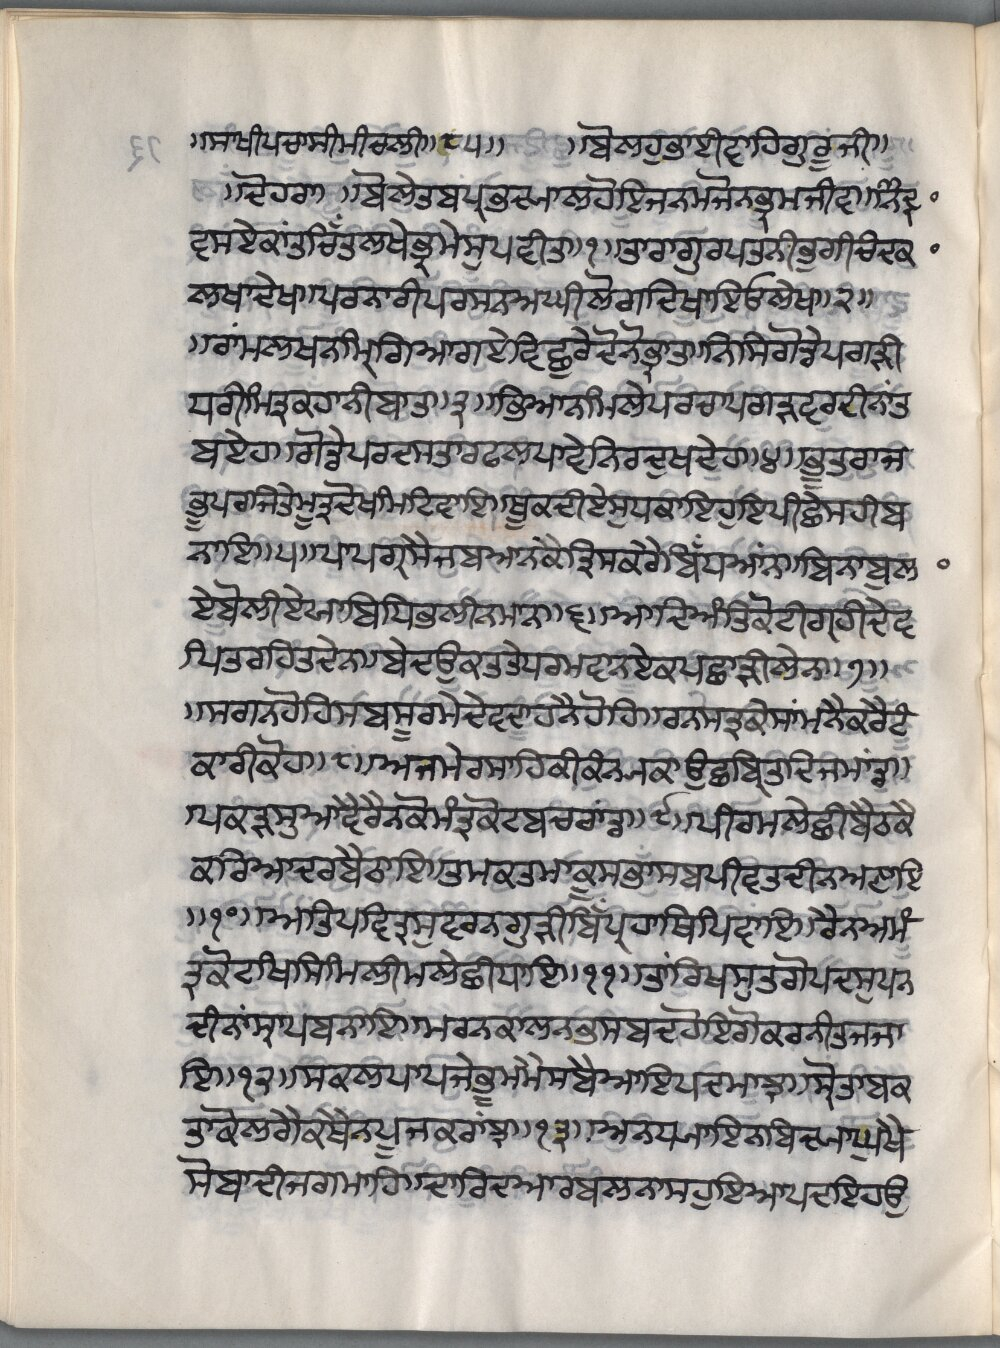 ॥ਸਾਖੀਪਚਾਸੀਮੀਚਲੀ॥੮੫॥ ॥ਬੋਲਹੁਭਾਈਵਾਹਿਗੁਰੂਜੀ॥
॥ਦੋਹਰਾ॥ਬੋਲੇਤਬਪ੍ਰਭਦ੍ਯਾਲਹੋਇਜਨਮਜੋਨਭ੍ਰਮਜੀਵ॥ਨਿੰਦ੍ਰ
ਵਸਏਕਾਂਤਚਿੰਤਲਖੇਭ੍ਰਮੇਸੁਪਵੀਤ॥੧॥ਤਾਰਾਗੁਰਪਤਨੀਭੁਗੀਚੰਦਕ
ਲਖਾਦੇਖ॥ਪਰਨਾਰੀਪਰਸਨਅਘੀਲੋਗਦਿਖਾਇਓਲੇਖ॥੨॥
॥ਰਾਂਮਲਖਨਮ੍ਰਿਗਿਆਗਏਵਿਛੁਰੈਦੋਨੋਭ੍ਰਾਤ॥ਨਿਸਿਗੋਤ੍ਰੇਪਗੜੀ
ਧਰੀਮਿਤ੍ਰਕਹਾਨੀਬਾਤ॥੩॥ਭ੍ਰਿਆਨਮਿਲੇਪਰਚਾਪਗੜਵ੍ਰਦੀਨਾਂਤ
ਬਏਹ॥ਗੋਤ੍ਰੇਪਰਦਸਤਾਰਫਲਪਾਵੇਨਿਰਦੁਖਦੇਹ॥੪॥ਭੂਤਰਾਜ
ਭੂਪਰਾਜਿਤੇਮੂਤ੍ਰਦੋਖਮਿਟਿਵਾਇ॥ਥੂਕਦੀਏਸੁਧਕਾਇਹੁਇਪੀਛੇਸਹੀਬ
ਨਾਇ॥੫॥ਪਾਪਗ੍ਰਸੈਜਬਅਨਕੋਤਿਸਕਰੈਬਿੰਧਆਂਨ॥ਬਿਨਾਬੁਲ
ਏਬੋਲੀਏਖਾਬਿਧਿਭਲੀਨਮਾਨ॥੬॥ਆਦਿਅੰਤਿਕੋਟੀਗ੍ਰਹੀਦੇਵ
ਪਿਤਰਹਿਤਦੇਨ॥ਬੇਦਉਕਤਤੇਪਰਮਦਾਨਏਕਪਛਾੜੀਲੇਨ॥੭॥
॥ਸਗਨਹੋਹਿਸਬਸੂਰਮੇਦੇਵਦਾਹਨੈਹੋਹਿ॥ਰਨਸਤ੍ਰਕੇਸਾਂਮਨੈਕਰੈਟਿ
ਕਾਰੀਕੋਹ॥੮॥ਅਜਮੇਰਸਾਹਿਕੀਕੰਨ੍ਯਕਾਉਛਬ੍ਰਿਤਦਿਜਮਾਂਤ੍ਰ॥
ਪਕੜਸੁਆਦੈਰੈਨਕੋਮੰਤ੍ਰਕੋਟਬਚਰਾਂਤ੍ਰ॥੯॥ਪੀਰਮਲੇਛੀਬੈਠਕੈ
ਕਰਿਆਦਰਬੈਠਾਇ॥ਤੁਮਕਤਮਾਕੁਸਭਾਂਸਬਪੀਵਤਦੀਨਅਣਾਇ
॥੧੦॥ਅਤਿਪਵਿਤ੍ਰਸੁਵਰਨਗੁੜੀਬਿੱਪ੍ਰਹਾਥਿਪਿਵਾਇ॥ਰੈਨਅਮੰ
ਤ੍ਰਕੋਟਖਾਸਿਮਿਲੀਮਲੇਛੀਧਾਇ॥੧੧॥ਤਾਂਰਿਖਸੁਤਗੋਪਦਸੁਪਨ
ਦੀਨਾਂਸ੍ਰਾਪਬਨਾਇ॥ਮਰਨਕਾਲਨਭਸਬਦਹੋਇਗੋਕਰਨੀਤਜਜਾ
ਇ॥੧੨॥ਸਕਲਪਾਪਜੇਭੂਮਮੈਸਬੈਆਇਪਦਮਾਤ੍ਰ॥ਸ੍ਰੋਤਾਬਕ
ਤਾਕੋਲਗੈਕੇਬੈਨਧੁਜਕਰਾਂਤ੍ਰ॥੧੩॥ਅਨਧ੍ਯਾਇਨਬਿਦ੍ਯਾਘਖੇ
ਸੋਬਾਦੀਜਗਮਾਹਿ॥ਦਾਰਿਦਆਰਬਲਨਾਸਹੁਇਆਪਦਇਹਉ